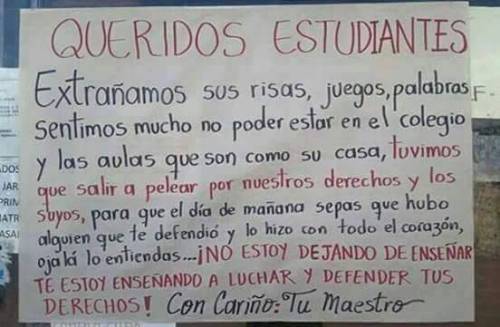 QUERIDOS ESTUDIANTES
Extrañamos sus risas, juegos, palabras
sentimos mucho no poder estar en el colegio
y las aulas que son como su casa, tuvimos
que salir a pelear por nuestros derechos y los
suyos, para que el día de mañana sepas que hubo
alguien que te defendió y lo hizo con todo el corazón,
ojalá lo entiendas...¡NO ESTOY DEJANDO DE ENSEÑAR
TE ESTOY ENSEÑANDO A LUCHAR Y DEFENDER TUS
DERECHOS! Con Cariño: Tu Maestro